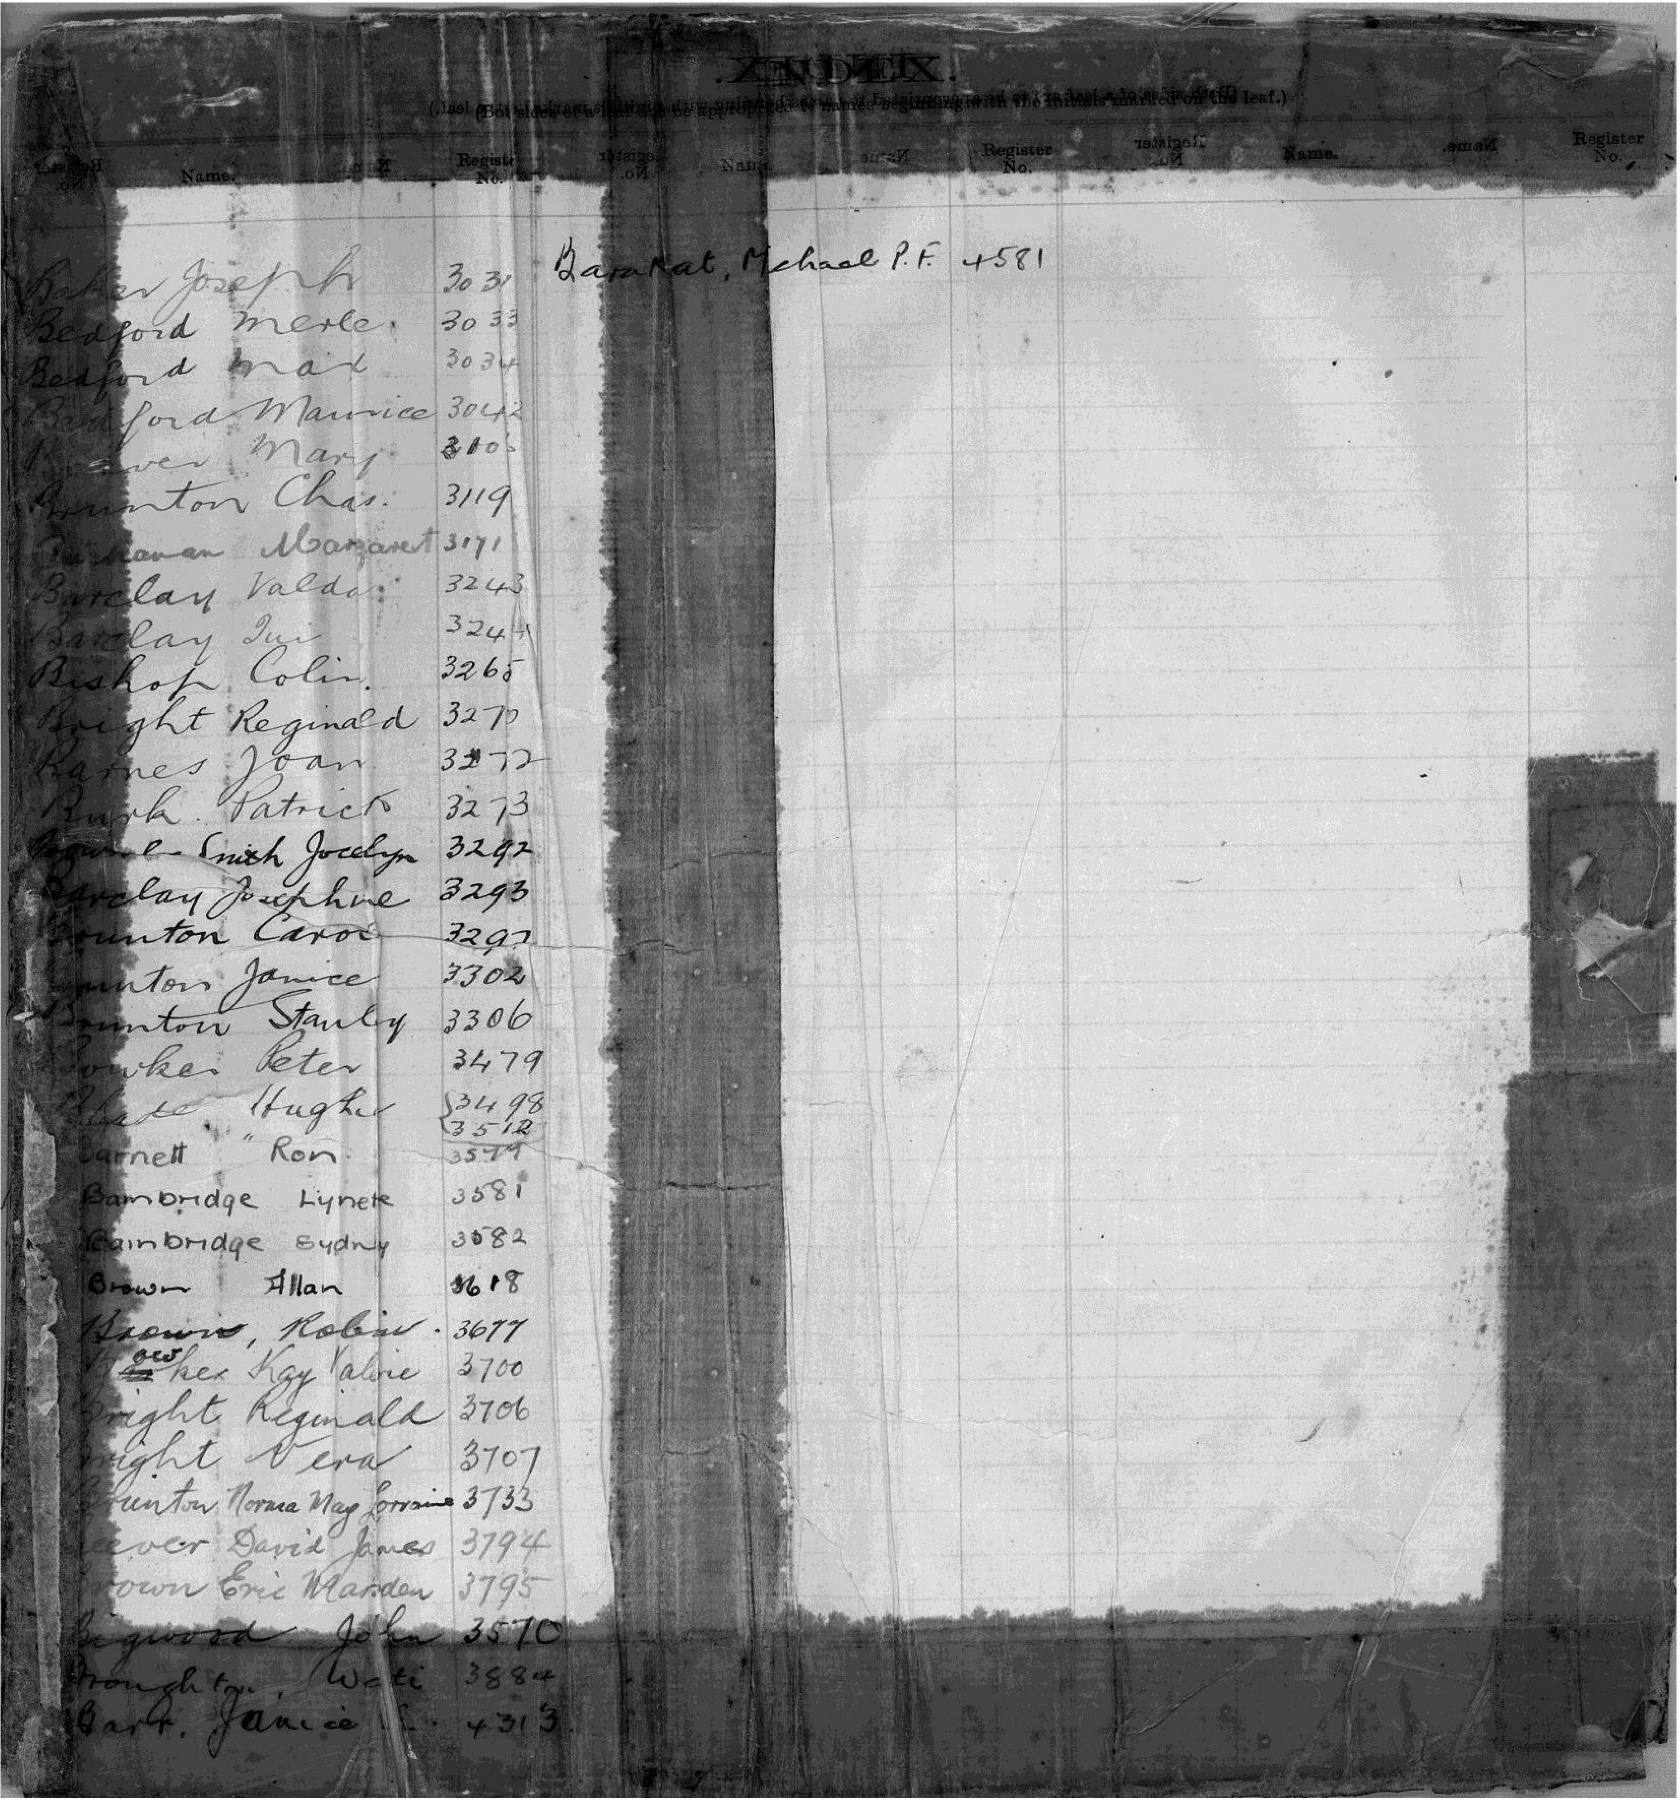 INDEX.
(Both sides of a leaf to be appropriated to names beginning with the initials marked on the leaf.)
Name. Register No. Register No. Name. Register No.
Baker Joseph 3031 Barakat, Michael P.F. 4581
Bedford Merle. 3033
Bedford Max 3034
Bedford Maurice 3042
Mary 3106
Brunton Chas. 3119
Buchanan Margaret 3171
Barclay Valda 3243
Barclay 324
Bishop Colin. 3265
Bright Reginald 3270
Barnes Joan 3272
Burk. Patrick 3273
Smith Jocelyn 3292
Barclay Josephine 3293
Brunton Carol 3297
Brunton Janice 3302
Brunton Stanley 3306
Bowker Peter 3479
Hugh 3498
3512
Barnett " Ron 3577
Bambridge Lynette 3581
Bambridge Sydny 3582
Brown Allan 3618
Brown, Robin. 3677
Bowker Kay Valerie 3700
Bright Reginald 3706
Bright Vera 3707
Brunton Norma May Lorraine 3733
Beever David James 3794
Brown Eric Marsden 3795
Bigwood John 3570
Broughton, 3884
Barr, Janice 4313